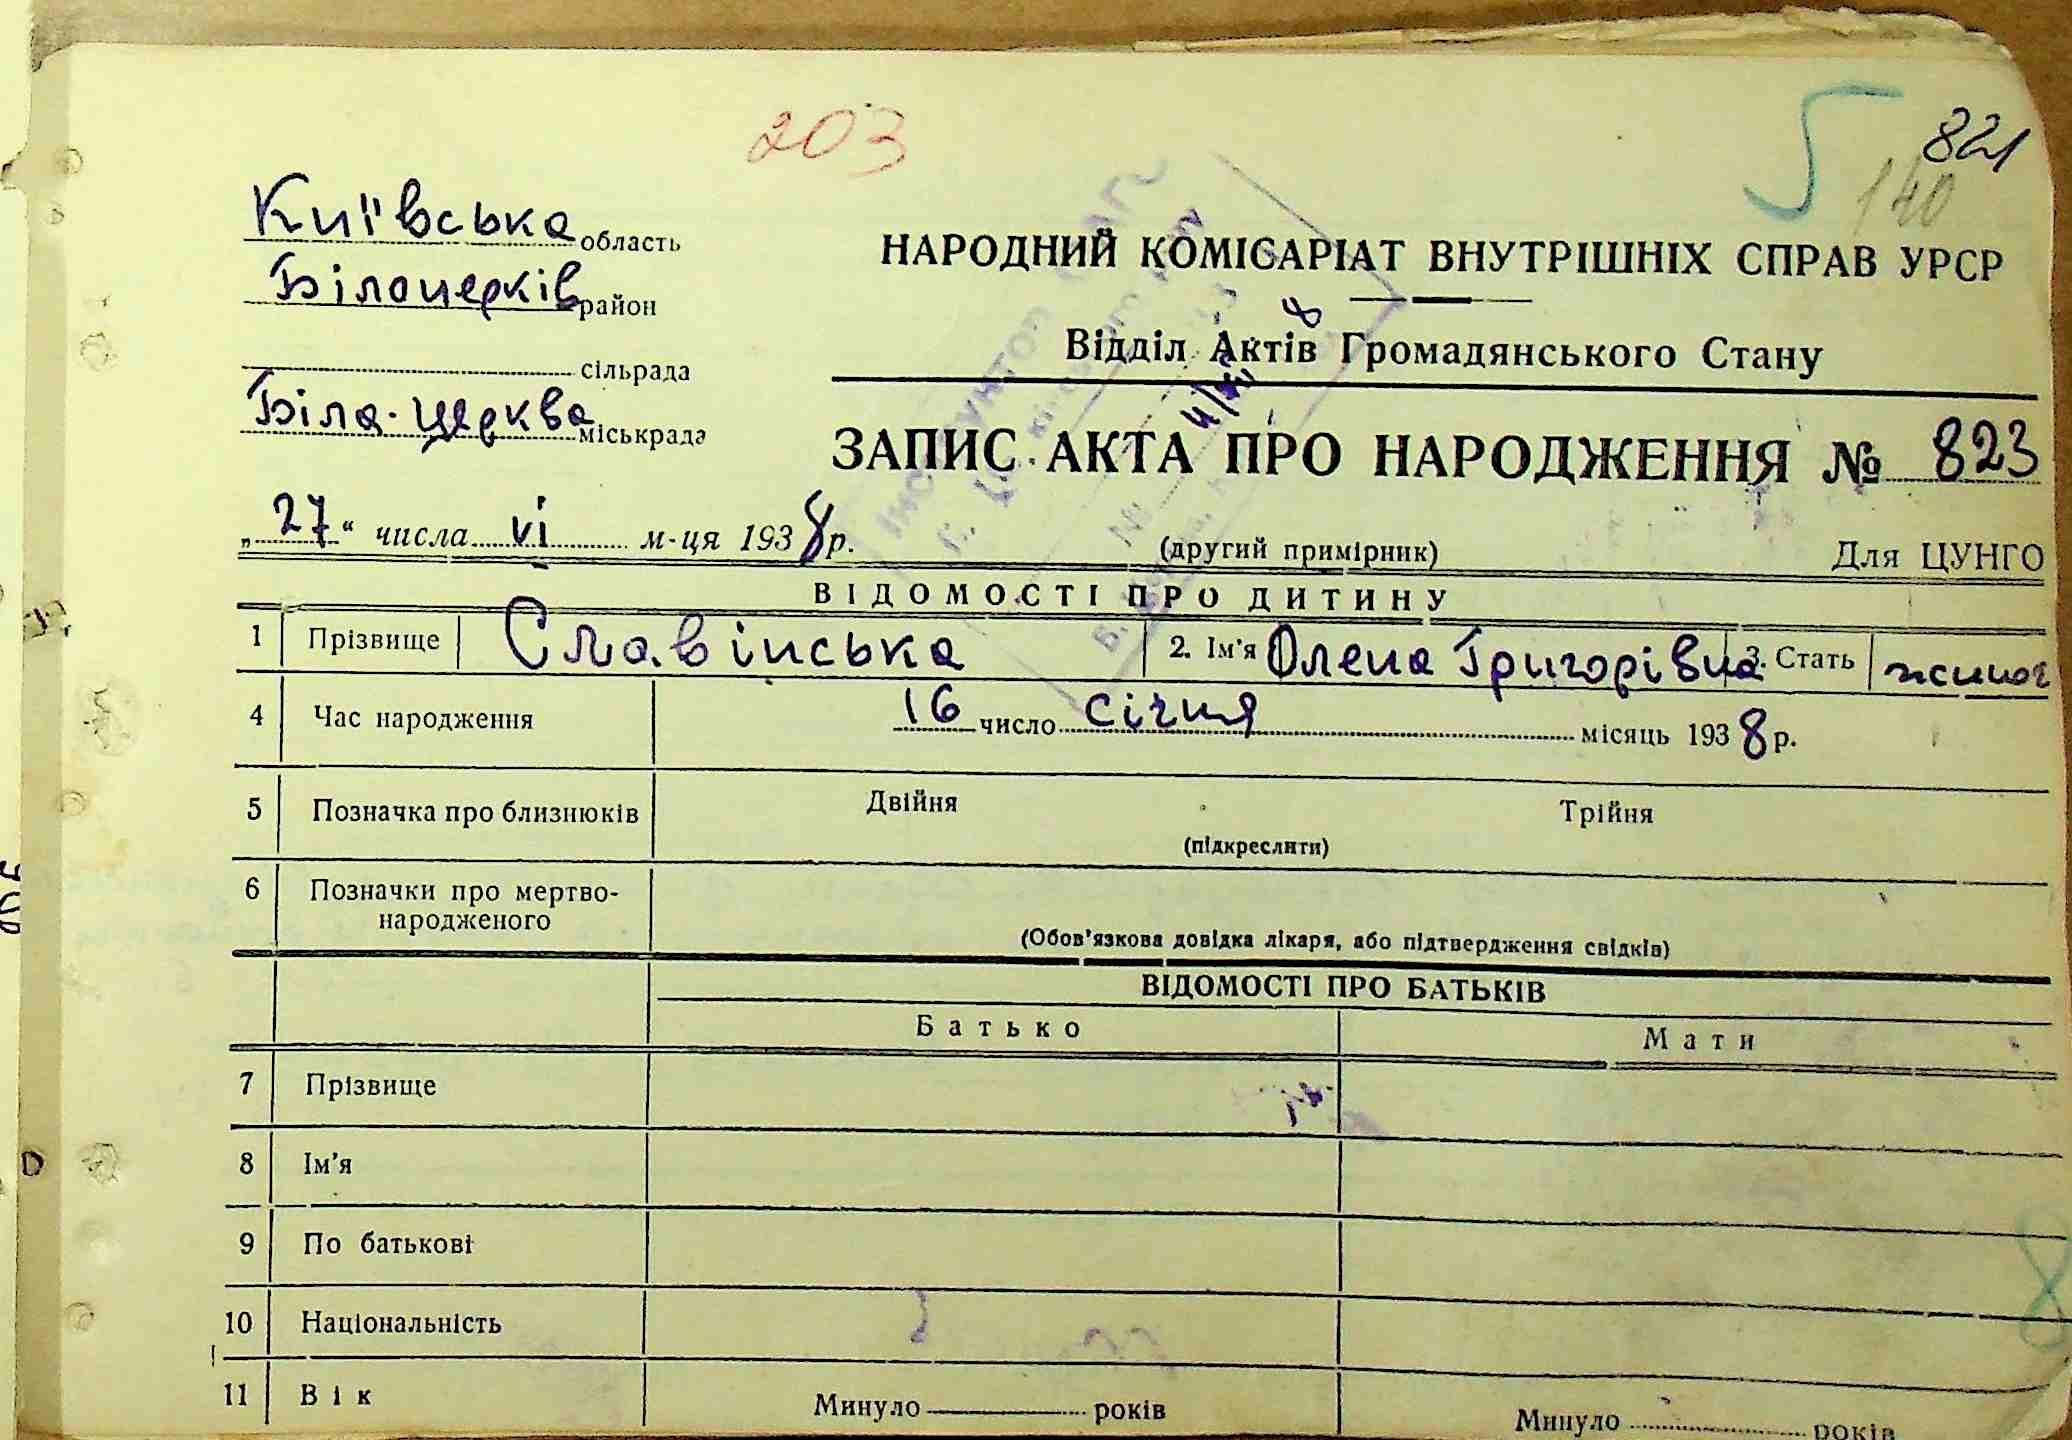 203
821
140
Київська область
Білоцерків район
сільрада
Біла-церква міськрада
НАРОДНИЙ КОМІСАРІАТ ВНУТРІШНІХ СПРАВ УРСР
Відділ Актів Громадянського Стану
ЗАПИС АКТА ПРО НАРОДЖЕННЯ № 823
„27“ числа VI м-ця 1938 р.
(другий примірник) Для ЦУНГО
ВІДОМОСТІ ПРО ДИТИНУ
1 Прізвище Славінська 2. Ім'я Олена Григорівна 3. Стать жиноч
4 Час народження 16 число січня місяць 1938 р.
5 Позначка про близнюків Двійня Трійня
(підкреслити)
6 Позначки про мертво-
народженого
(Обов'язкова довідка лікаря, або підтвердження свідків)
ВІДОМОСТІ ПРО БАТЬКІВ
Батько Мати
7 Прізвище
8 Ім'я
9 По батькові
10 Національність
11 Вік Минуло років Минуло років